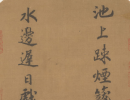 池上疎煙籠
水邊遲日戲